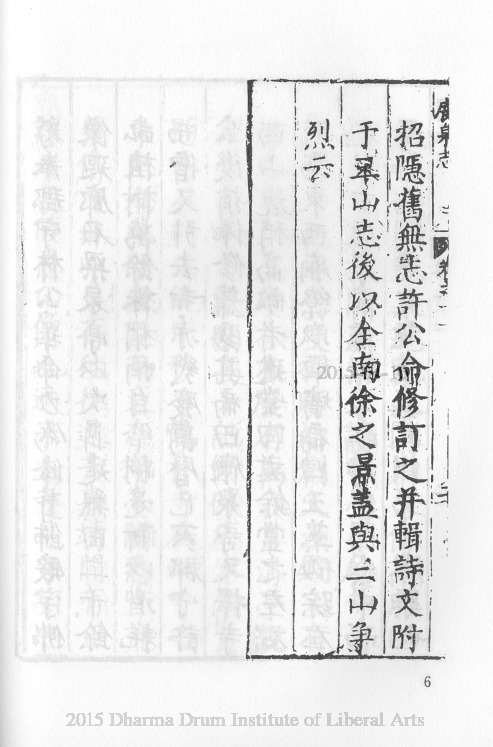 泉志
卷之
招隱舊無志許公命修訂之并輯詩文附
于山志後以全南徐之景蓋與三山爭
烈云
2015
6
2015 Dharma Drum Institute of Liberal Arts